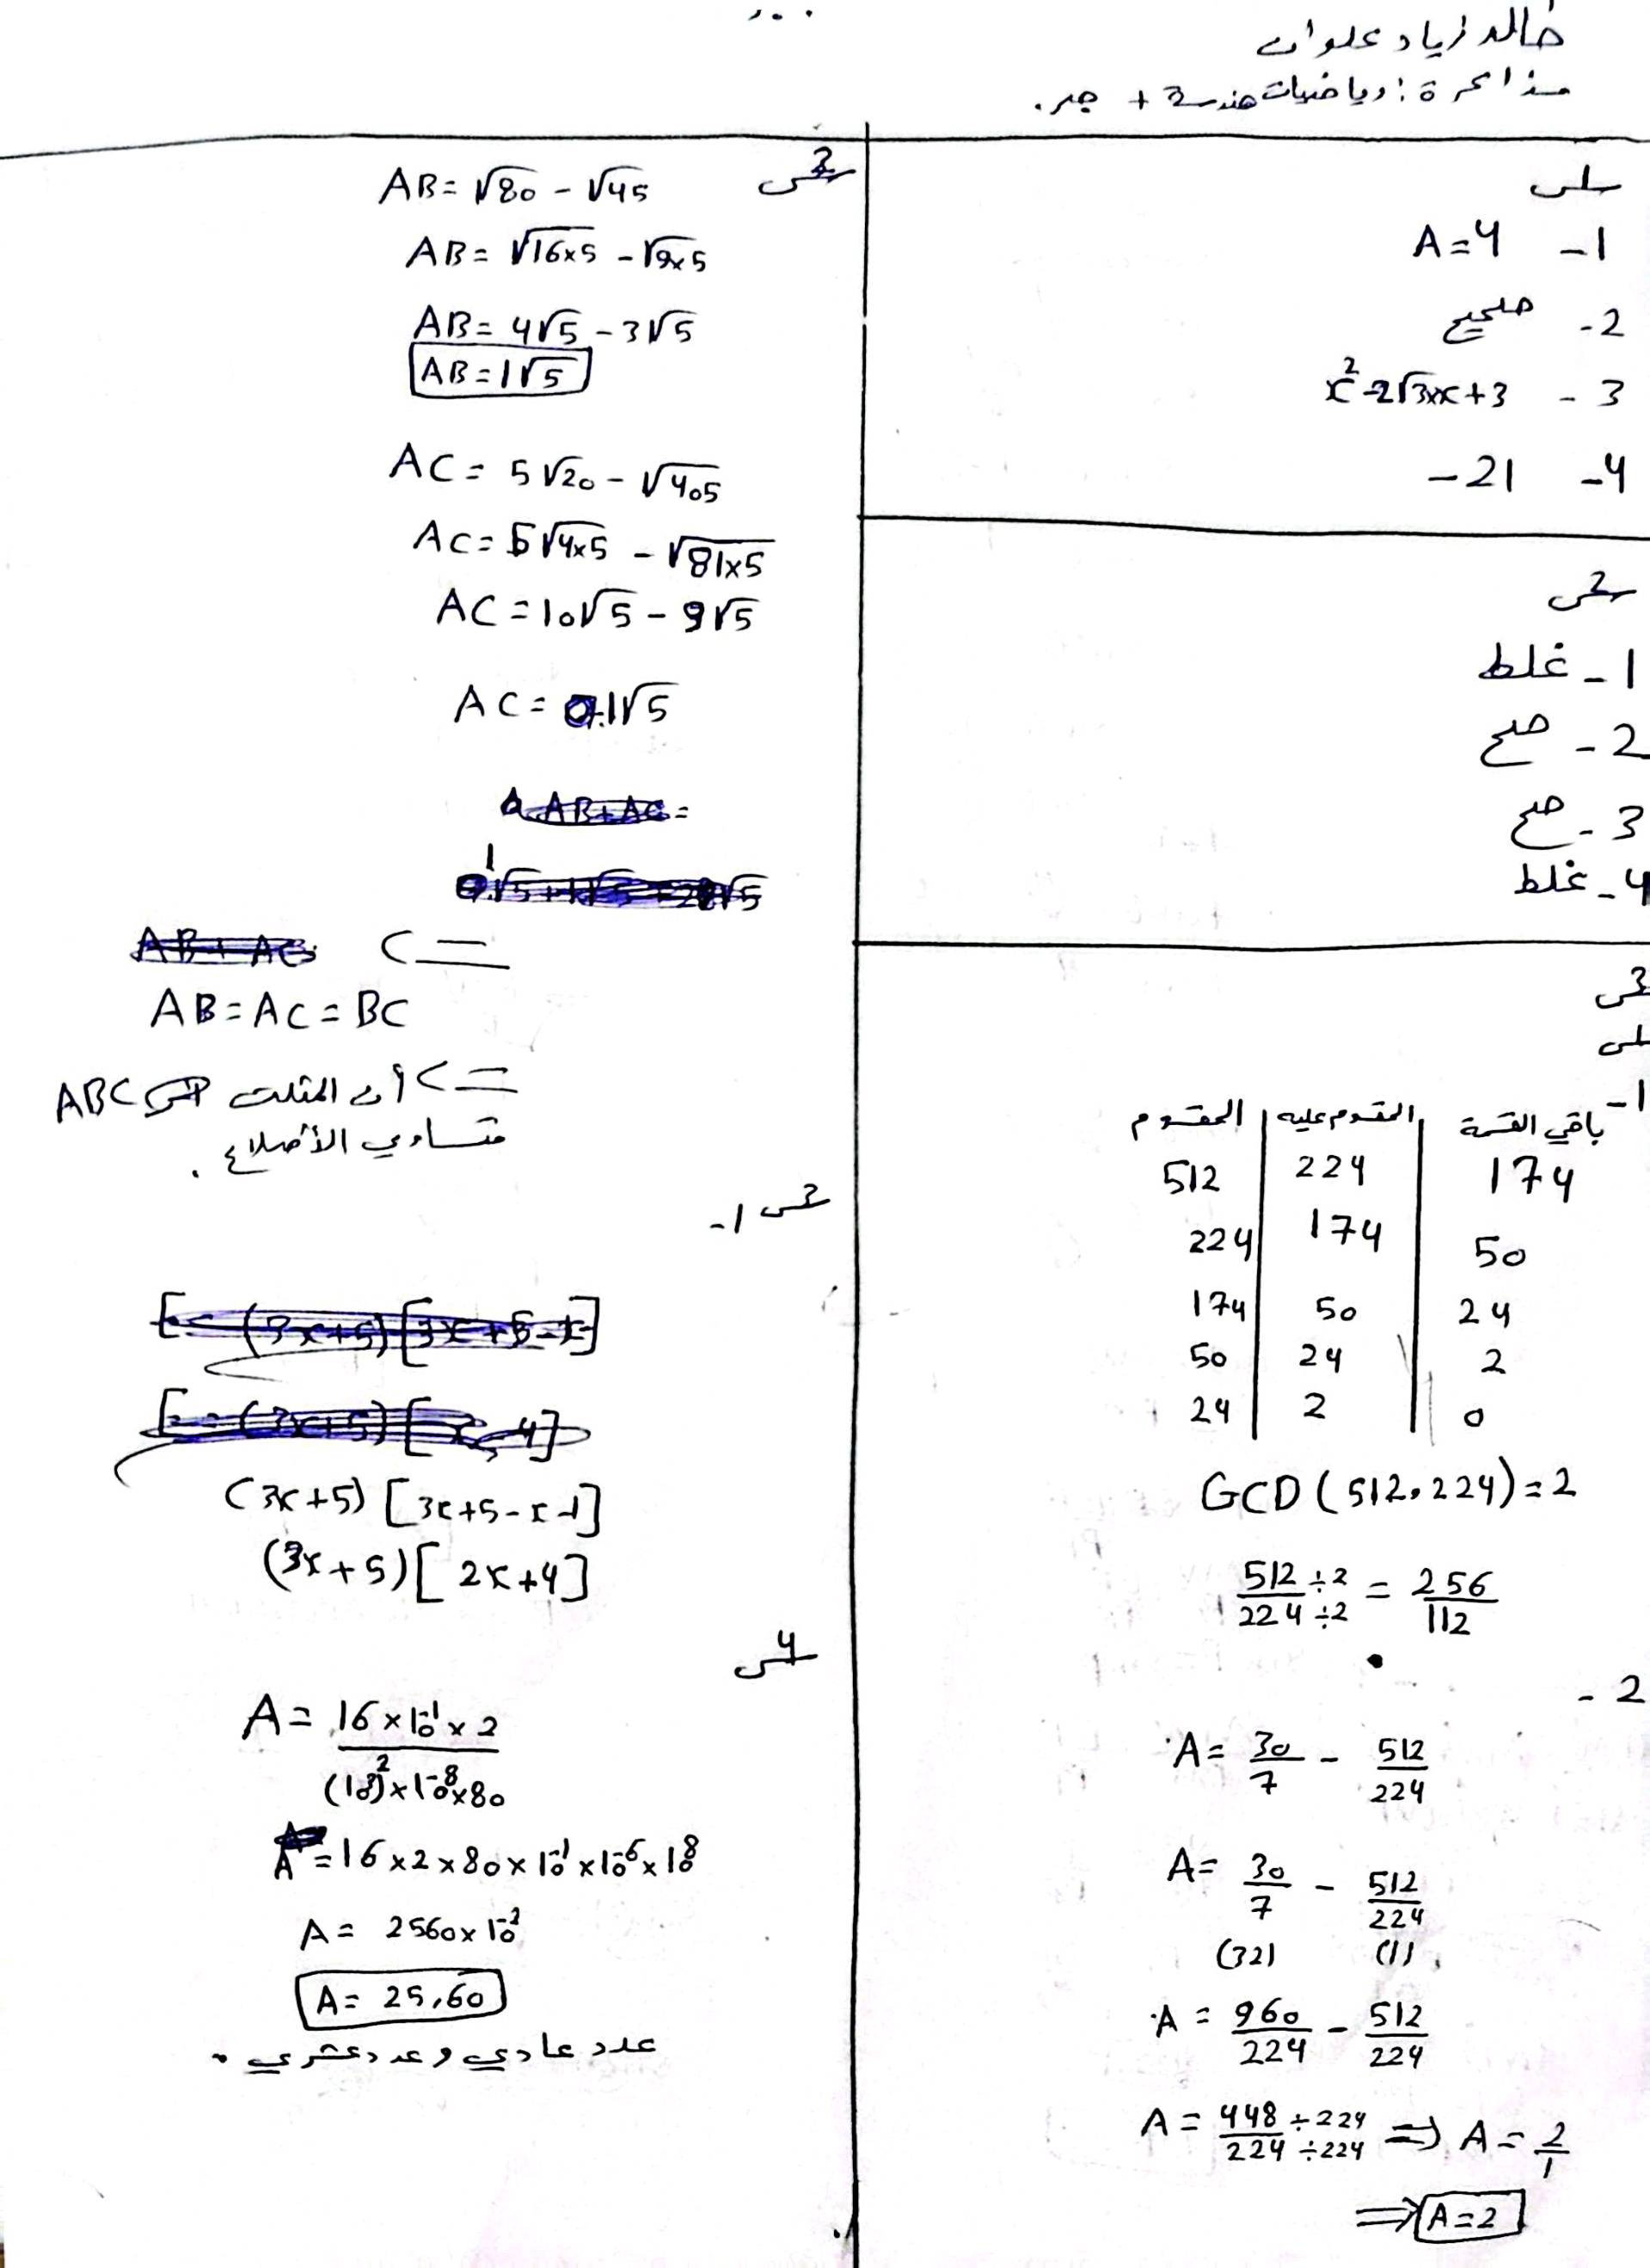 خالد زياد علوان
مذاكرة: رياضيات هندسة + جبر.
س1
1- A=4
2- صحيح
3- x²-2√3x+3
4- -21
س2
1- غلط
2- صح
3- صح
4- غلط
س3
س1
1-
المقسوم | المقسوم عليه | باقي القسمة
512 | 224 | 174
224 | 174 | 50
174 | 50 | 24
50 | 24 | 2
24 | 2 | 0
GCD (512,224)=2
512÷2/224÷2 = 256/112
2-
A= 30/7 - 512/224
A= 30/7 - 512/224
(32) (1)
A = 960/224 - 512/224
A = 448÷224/224÷224 => A = 2/1
=> A=2
س2
AB= √80 - √45
AB= √16×5 - √9×5
AB= 4√5 - 3√5
AB=1√5
AC= 5√20 - √405
AC= 5√4×5 - √81×5
AC=10√5 - 9√5
AC= 1√5
<=
AB=AC=BC
<= أن المثلث ABC
متساوي الأضلاع.
س3 1-
(3x+5)[3x+5-x-1]
(3x+5)[2x+4]
س4
A= 16×10⁻¹×2/(10³)²×10⁻⁸×80
A=16×2×80×10⁻¹×10⁻⁶×10⁸
A= 2560×10⁻²
A= 25,60
عدد عادي وعدد عشري.